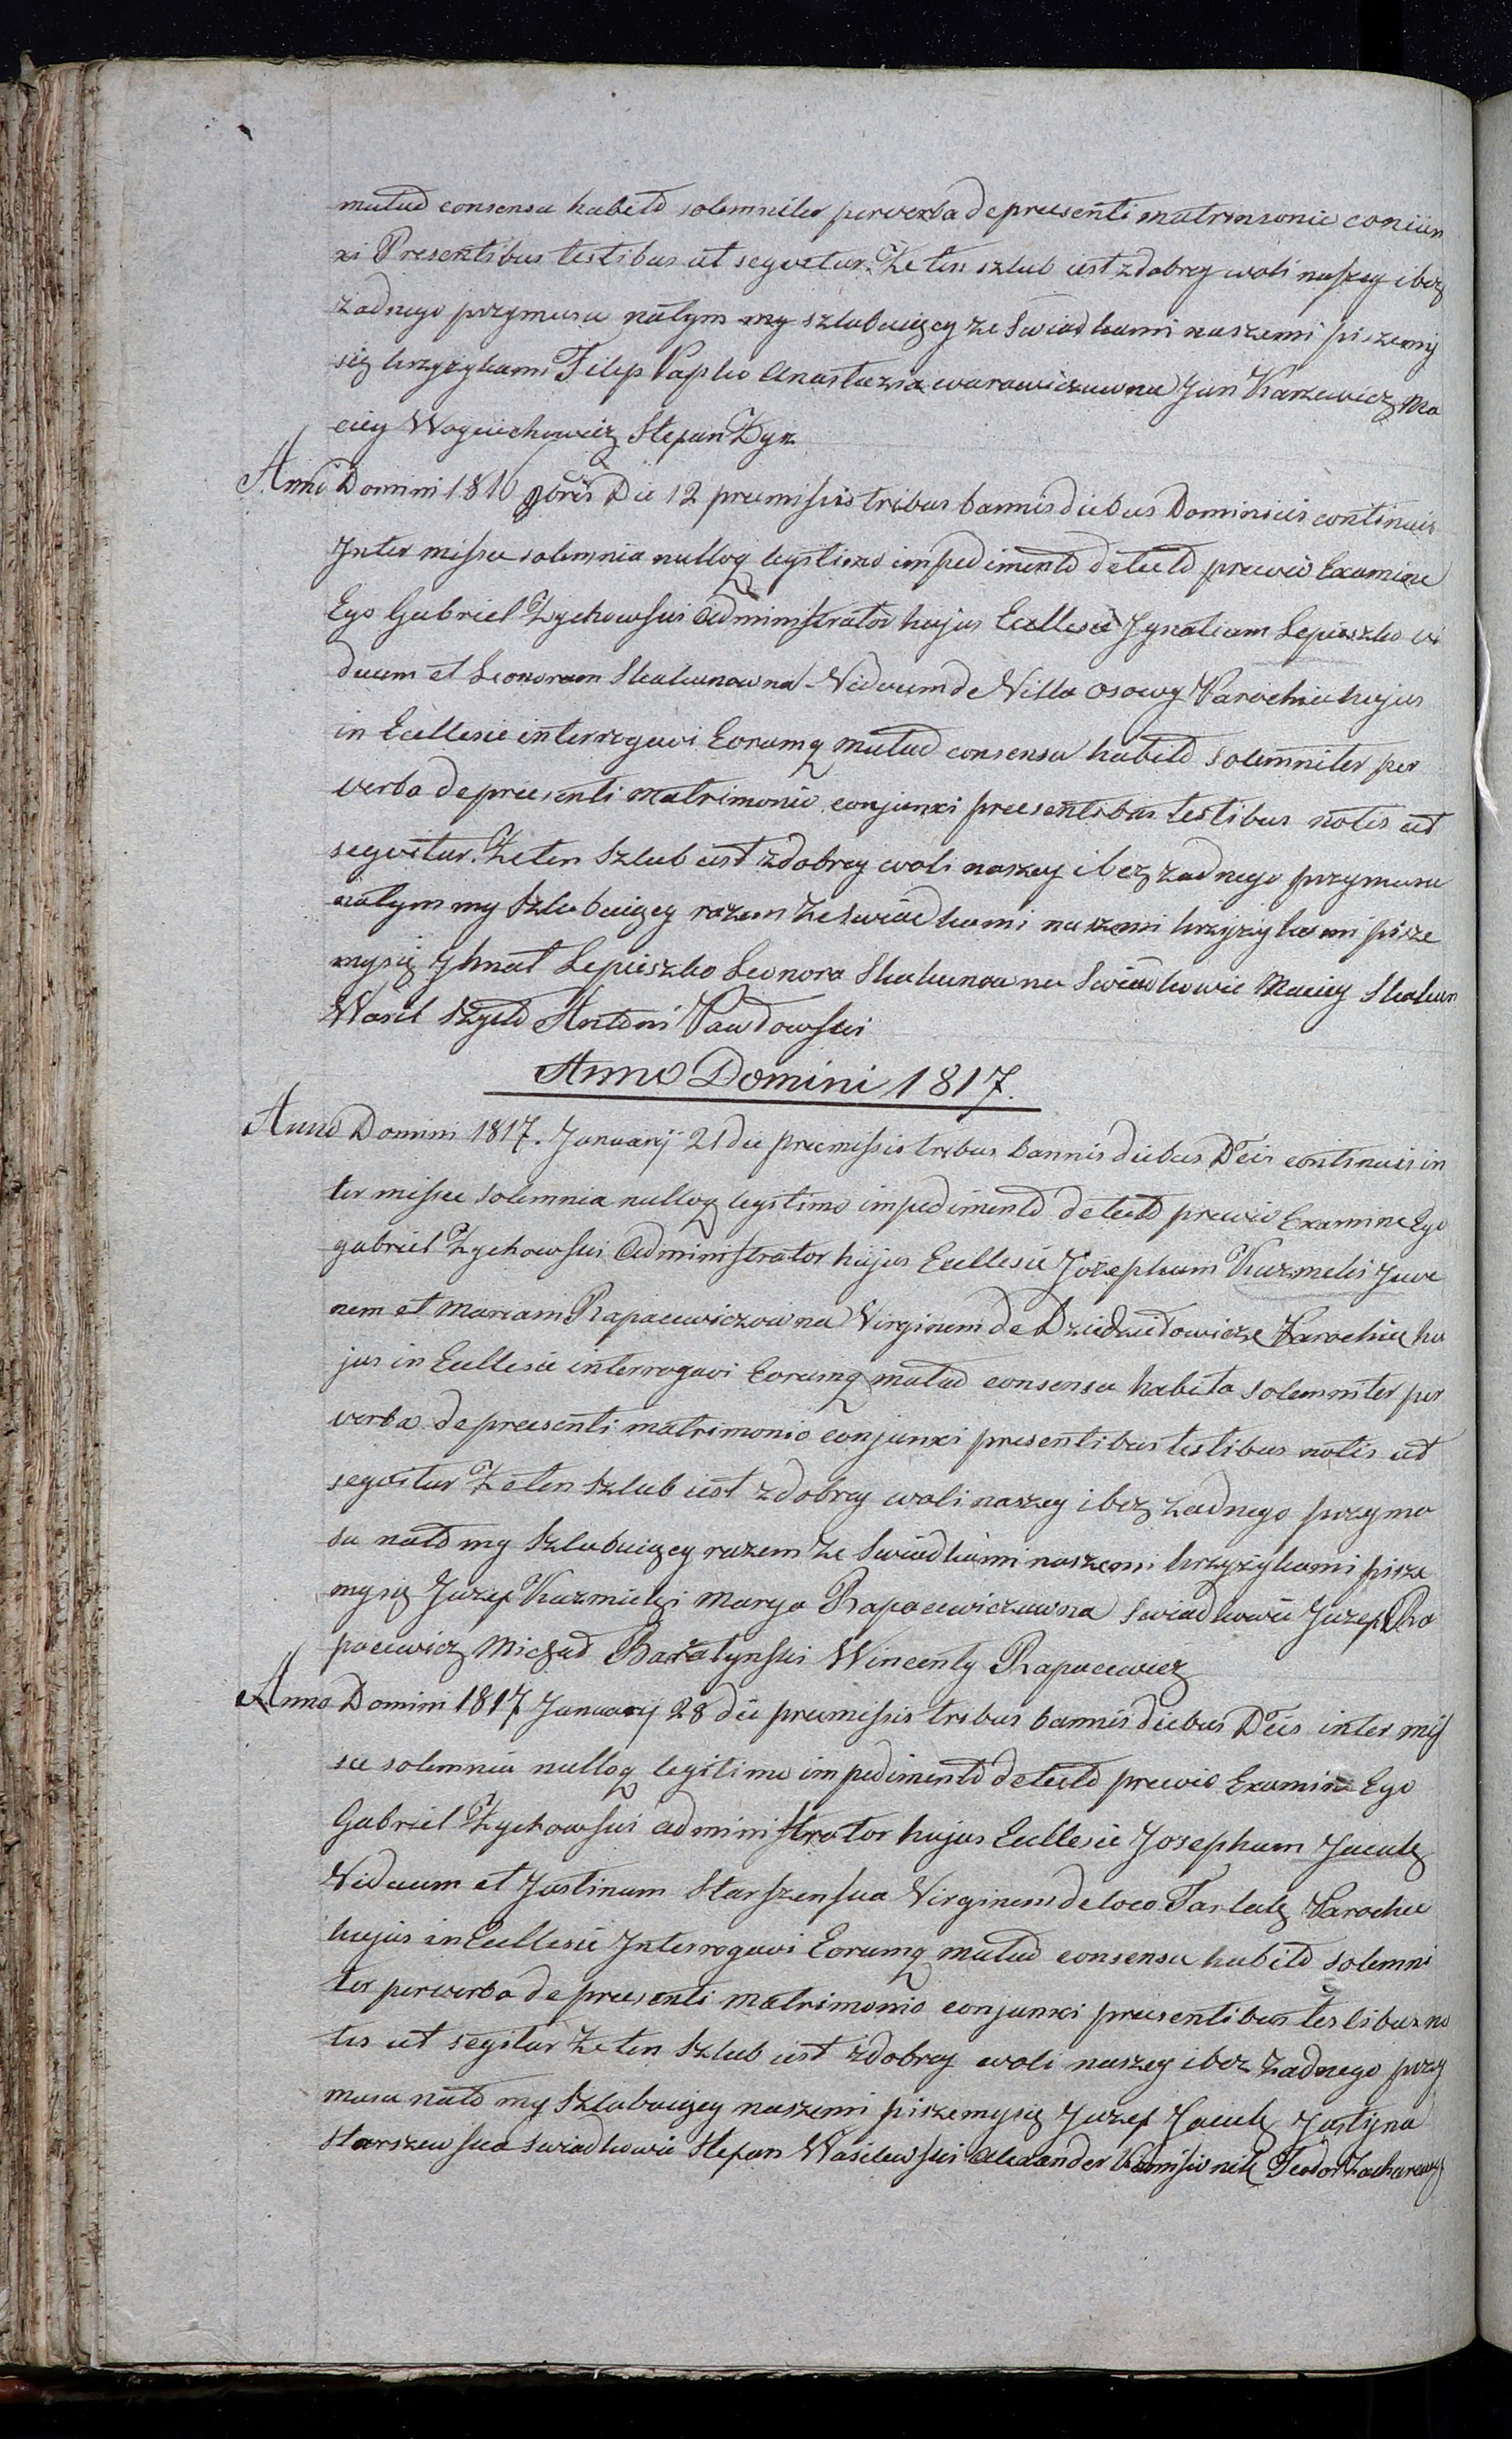 mutuo consensu habito solemniter per verba de presenti matrimonio coniun
xi Presentibus testibus ut seqvetur. Że ten szlub iest z dobrey woli naszey i bez
żadnego przymusu natym my szlubuięcy ze swiadkami naszemi piszemy
się krzyżykami Filip Papko Anastazia warawiczuwna Jan Karzewicz Ma
ciey Woyciechowicz Stepan Dyr
Anno Domini 1816 9bris Die 12 premissis tribus bannis diebus Dominicis continuis
Inter missa solemnia nulloq legitimo impedimento detecto previo Examine
Ego Gabriel Zychowski Administrator hujus Ecllesie Ignatium Lepieszko vi
duum et Leonoram Skakunowna Viduam de Villa Osowy Parochie hujus
in Ecllesie interrogavi Eorumq mutuo consensu habito solemniter per
verba de preesenti matrimonio conjunxi preesentibus testibus notis ut
seqvitur. Że ten Szlub iest z dobrey woli naszey i bez żadnego przymusu
natym my Szlubuięcy razem ze swiadkami naszemi krzyzykami pisze
mysię Ihnat Lepieszko Leonora Skakunowna Swiadkowie Maciey Skakun
Wasil Szyło Antoni Pawłowski
Anno Domini 1817.
Anno Domini 1817. Januarij 21 die premissis tribus bannis diebus Dcis continuis in
ter missee solemnia nulloq legitimo impedimento detecto previo Examine Ego
gabriel Zychowski Administrator hujus Ecllesie Jozephum Kuzmicki Juve
nem et Mariam Rapacewiczowna Virginem de Dziedziełowicze Parochie hu
jus in Ecllesie interrogavi Eorumq mutuo consensu habito solemniter per
verba de preesenti matrimonio conjunxi presentibus testibus notis ut
seqvitur Że ten Szlub iest z dobrey woli naszey i bez żadnego przymo
su nato my Szlubuięcy razem ze Swiadkami naszemi krzyżykami pisze
mysię Jozef Kuzmicki Marya Rapacewiczuwna swiadkowie Juzep Ra
pacewicz Michał Baratynski Wincenty Rapacewicz
Anno Domini 1817 January 28 die premissis tribus bannis diebus Dcis inter mis
see solemnia nulloq legitimo impedimento detecto previo Examine Ego
Gabriel Zychowski administrator hujus Ecllesie Josephum Jacuk
Viduum et Justinam Starszenska Virginem de loco Tartak Parochie
hujus in Ecllesie Interrogavi Eorumq mutuo consensu habito solemni
ter per verba de preesenti matrimonio conjunxi preesentibus testibus no
tis ut segitur Że ten Szlub iest z dobrey woli naszey i bez żadnego przy
musu nato my Szlubuięcy naszemi piszemysię Juzef Jacuk Justyna
Starszewska swiadkowie Stefan Wasilewski Alexander Kamisionik Teodor Zacharewicz